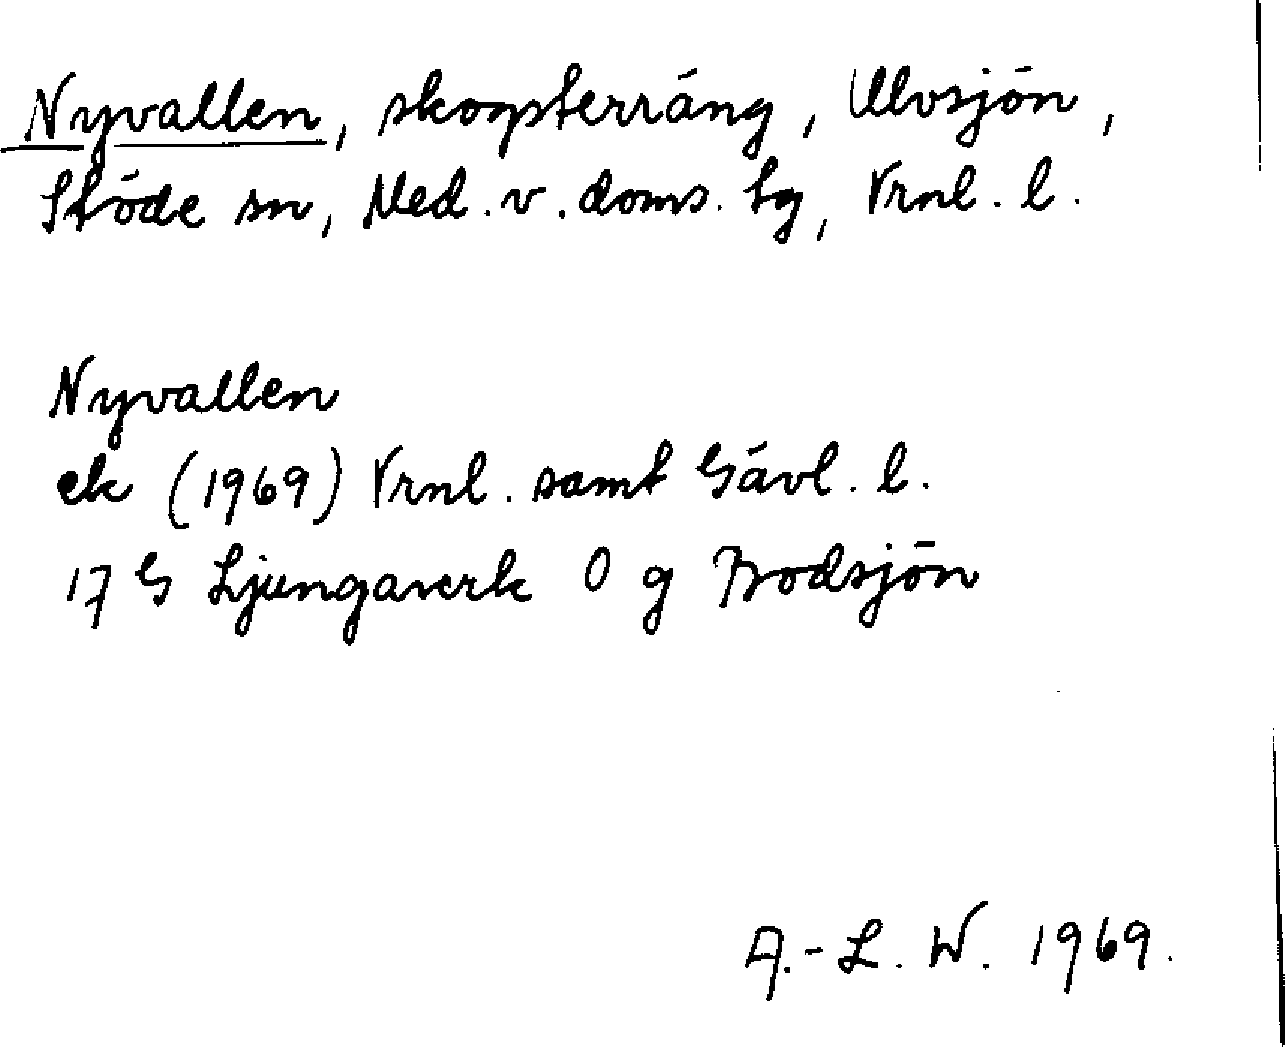 Nyvallen, skogsterräng, Ulvsjön,
Stöde sn, Med. v. doms. tg, Vrnl. l.
Nyvallen
ek (1969) Vrnl. samt Gävl. l.
17 G Ljungaverk O g Bodsjön
A.-L. W. 1969.